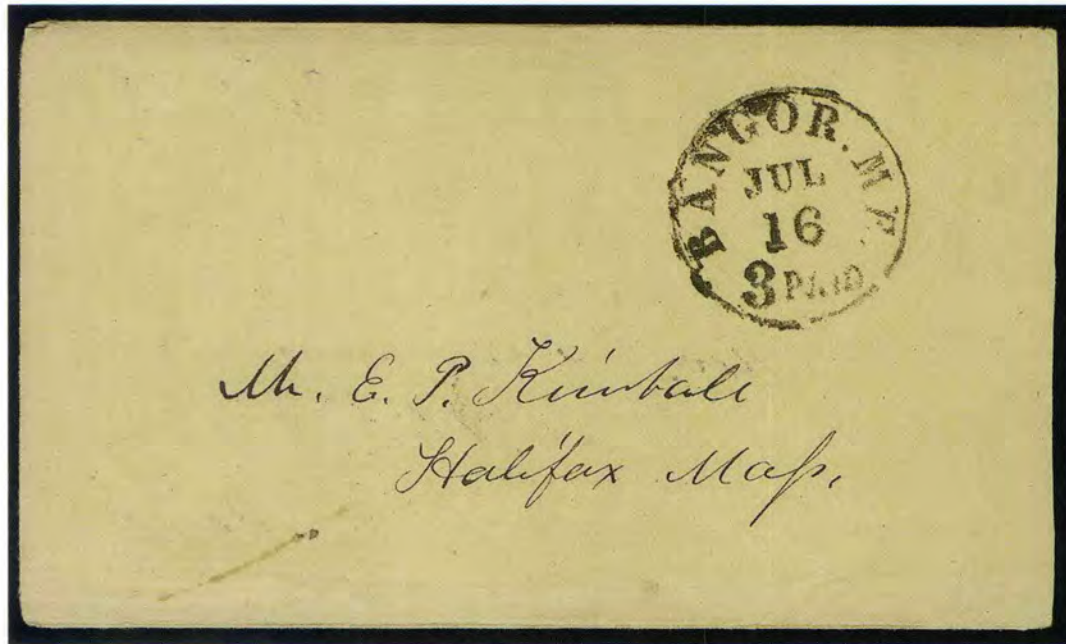 BANGOR. ME.
JUL
16
3 PAID
Mr. E. P. Kimball
Halifax Maſs.